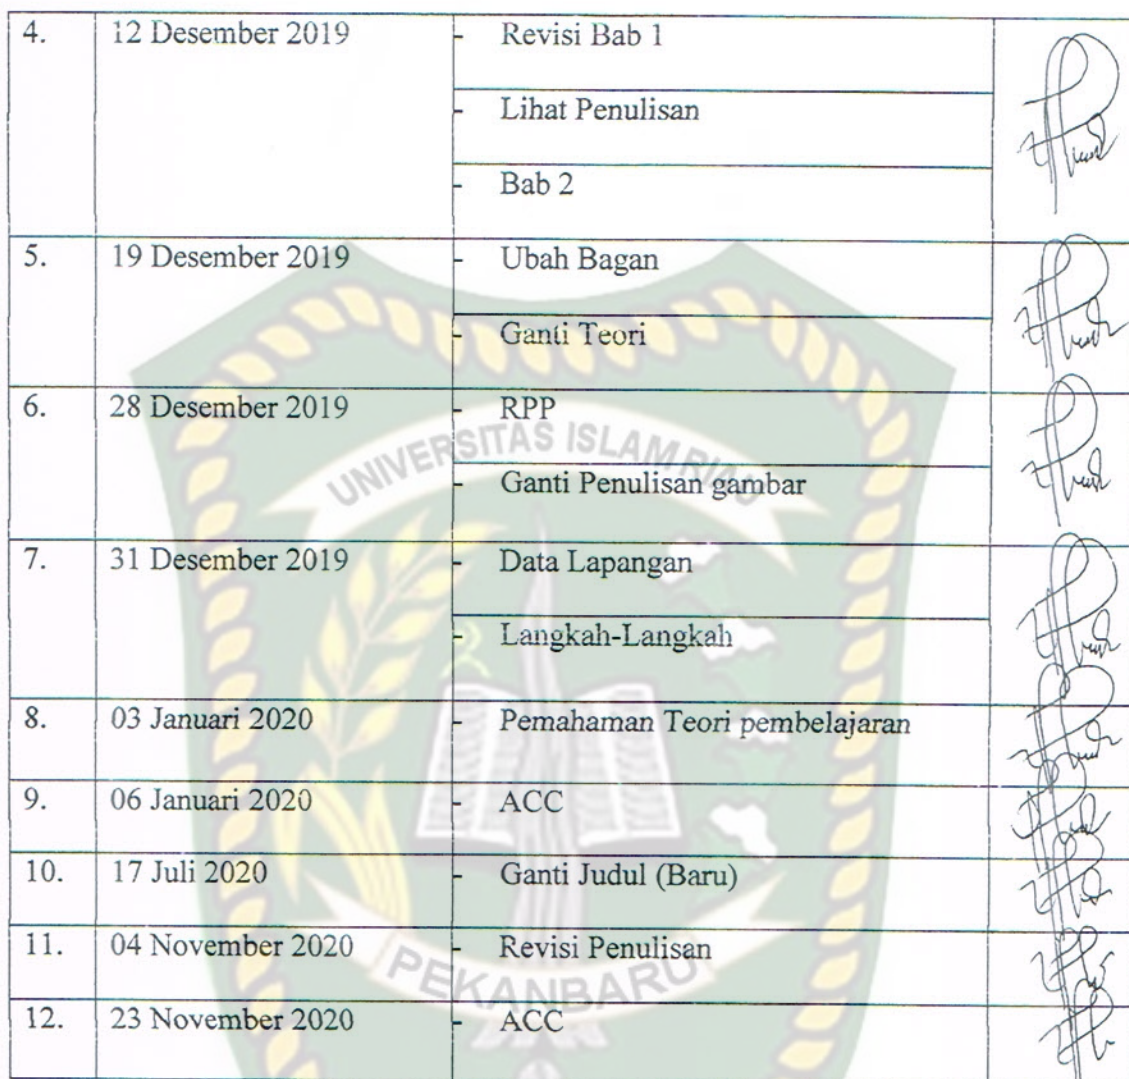 4. 12 Desember 2019 - Revisi Bab 1
- Lihat Penulisan
- Bab 2
5. 19 Desember 2019 - Ubah Bagan
- Ganti Teori
6. 28 Desember 2019 - RPP
UNIVERSITAS ISLAM RIAU
- Ganti Penulisan gambar
7. 31 Desember 2019 - Data Lapangan
- Langkah-Langkah
8. 03 Januari 2020 - Pemahaman Teori pembelajaran
9. 06 Januari 2020 - ACC
10. 17 Juli 2020 - Ganti Judul (Baru)
11. 04 November 2020 - Revisi Penulisan
PEKANBARU
12. 23 November 2020 - ACC